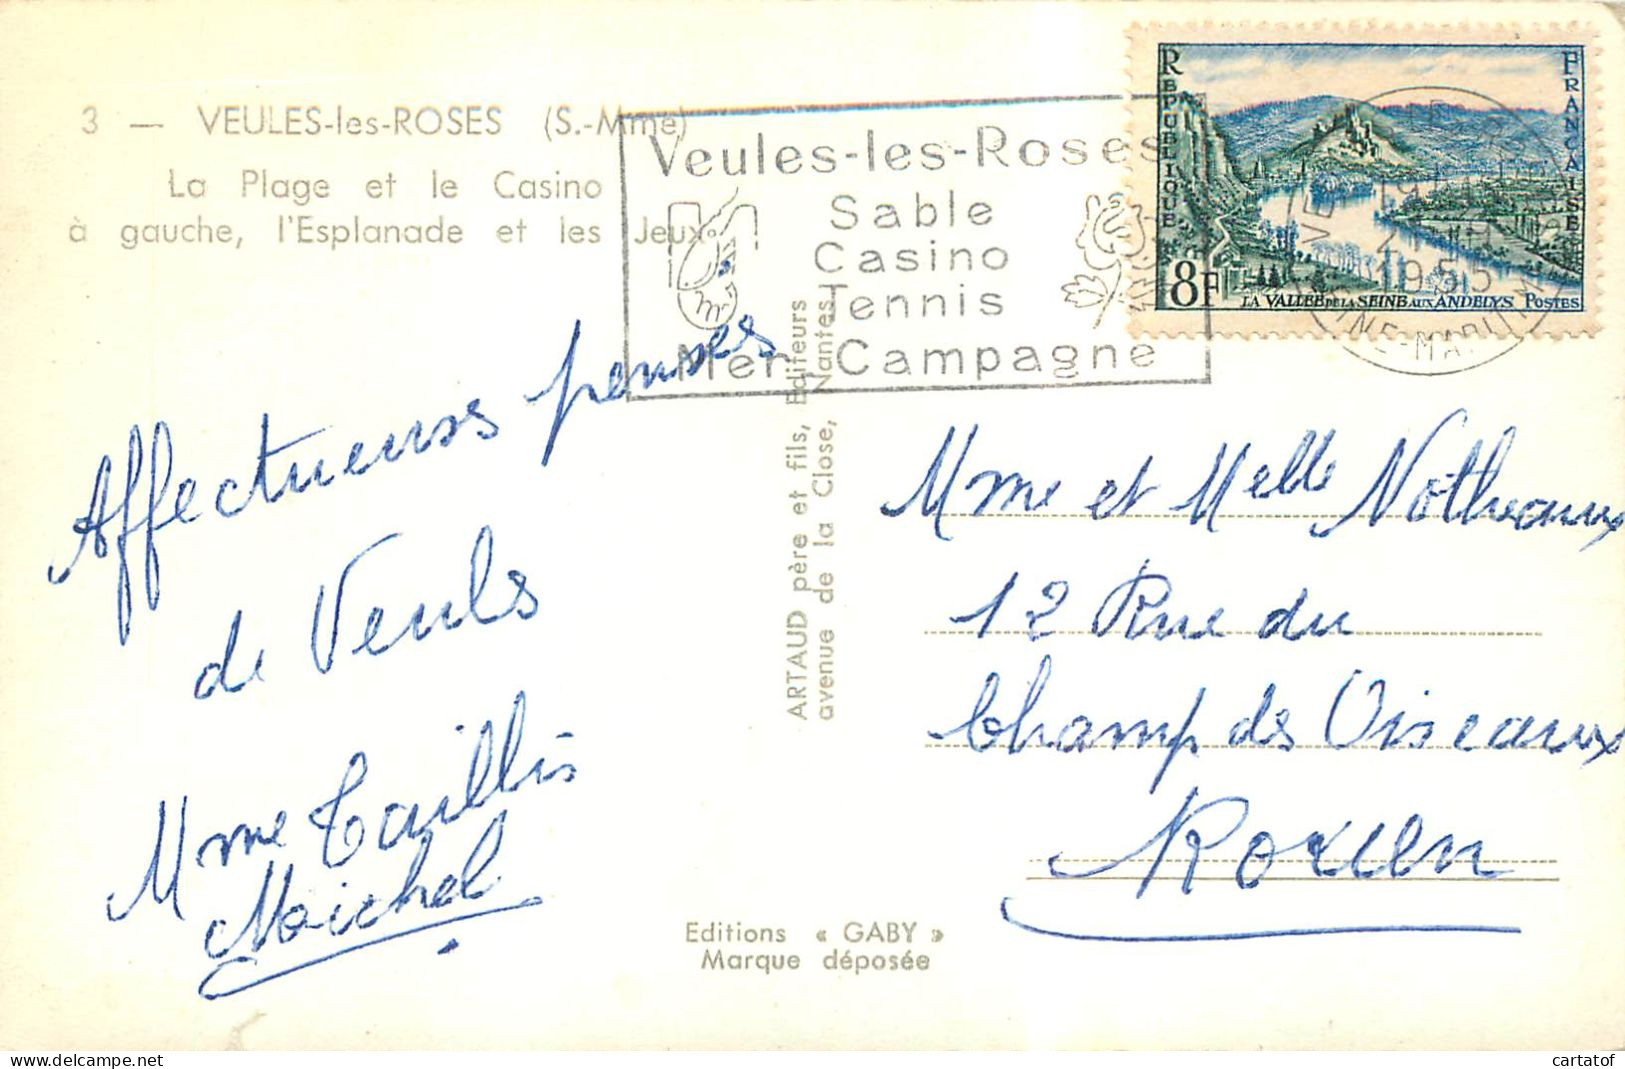 3 — VEULES-les-ROSES (S.-Mme)
La Plage et le Casino
à gauche, l'Esplanade et les Jeux
Veules-les-Roses
Sable
Casino
Tennis
Mer, Campagne
REPUBLIQUE
FRANCAISE
8F
LA VALLEE DE LA SEINE AUX ANDELYS POSTES
1955
Affectueuses pensées
de Veuls
Mme Taillis
Michel
ARTAUD père et fils, Editeurs
avenue de la Close, Nantes
Mme et Melle Notheaux
12 Rue du
Champ des Oiseaux
Rouen
Editions « GABY »
Marque déposée
cartatof